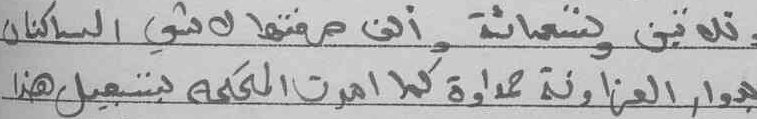 وثلاثين وتسعمائة وألف صرفتها لا شي الساكنان
بدوار العزاونة حداوة كما امرت المحكمه بتسجيل هذا